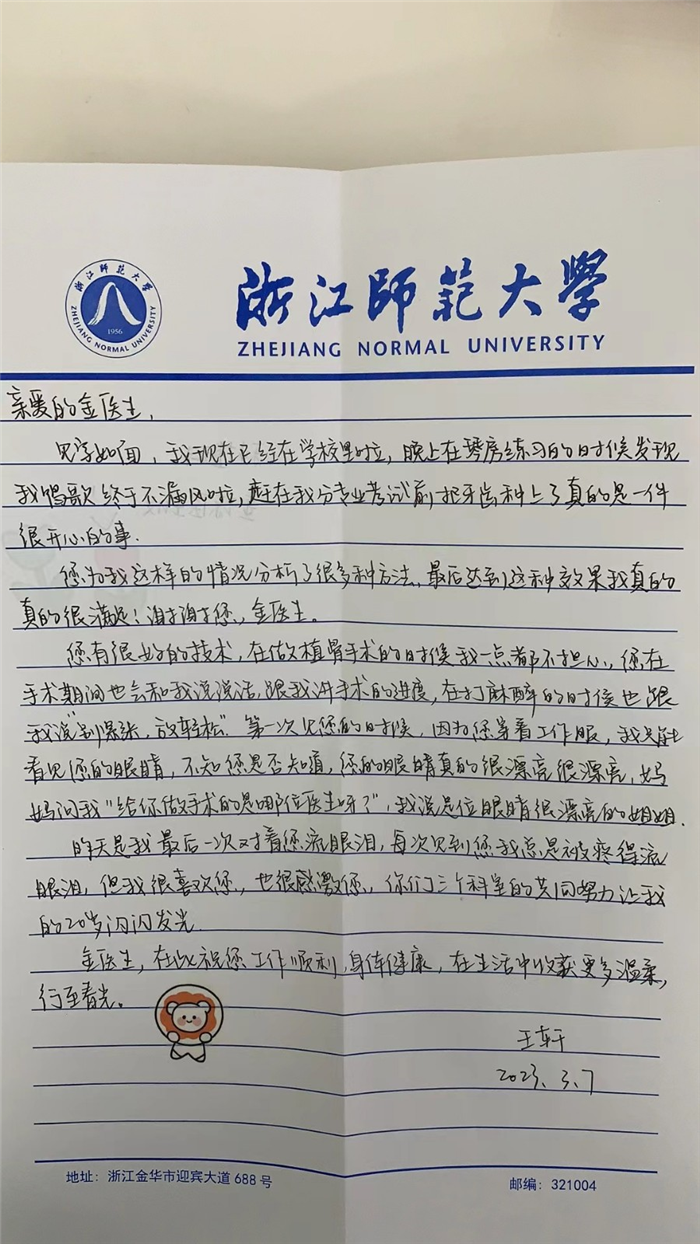 浙江师范大学
ZHEJIANG NORMAL UNIVERSITY
1956
浙江師範大學
ZHEJIANG NORMAL UNIVERSITY
亲爱的金医生,
见字如面,我现在已经在学校里啦,晚上在琴房练习的时候发现
我唱歌终于不漏风啦,赶在我分专业考试前把牙齿种上了真的是一件
很开心的事.
您为我这样的情况分析了很多种方法,最后达到这种效果我真的
真的很满足!谢谢您,金医生。
您有很好的技术,在做植骨手术的时候我一点都不担心,您在
手术期间也会和我说说话,跟我讲手术的进度,在打麻醉的时候也跟
我说“别紧张,放轻松”.第一次见您的时候,因为您穿着工作服,我只能
看见您的眼睛,不知您是否知道,您的眼睛真的很漂亮很漂亮,妈
妈问我“给你做手术的是哪位医生呀?”,我说是位眼睛很漂亮的姐姐.
昨天是我最后一次对着您流眼泪,每次见到您我总是被疼得流
眼泪,但我很喜欢您,也很感激您,你们三个科室的共同努力让我
的20岁闪闪发光.
金医生,在此祝您工作顺利,身体健康,在生活中收获更多温柔,
行至春光。
王轩
2023.3.7
地址:浙江金华市迎宾大道688号
邮编:321004